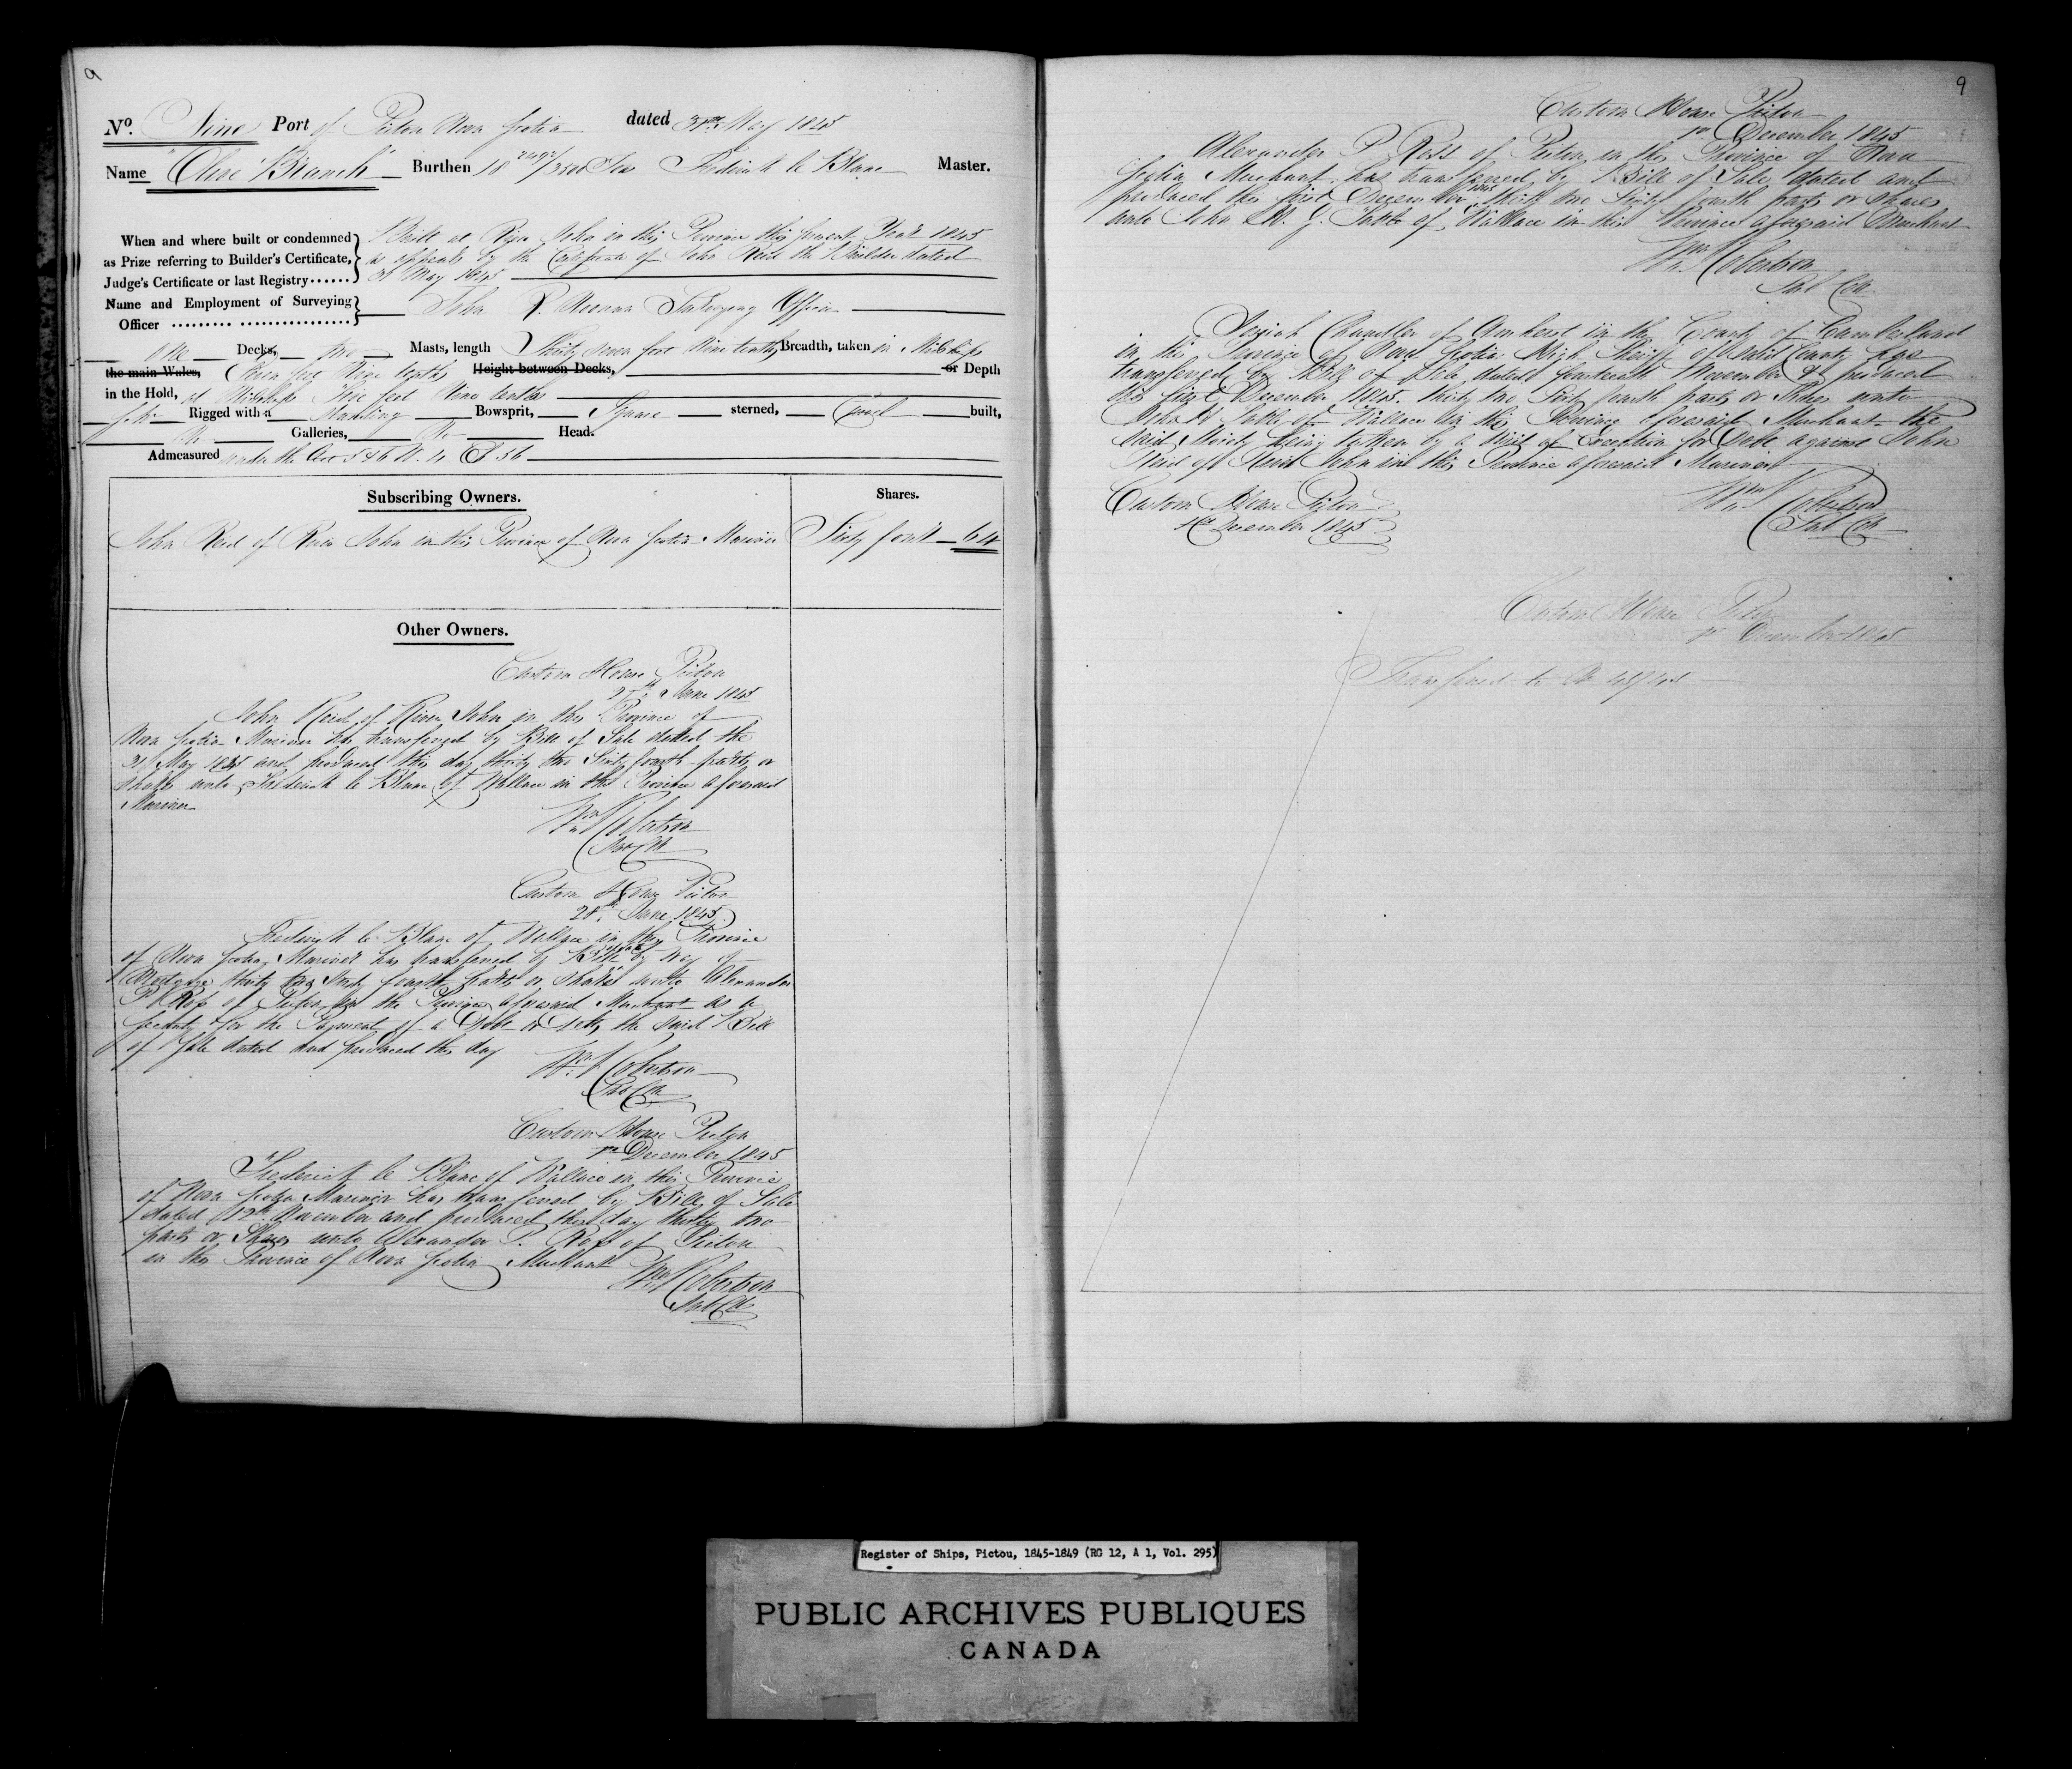 9
No. Nine Port of Pictou Nova Scotia dated 31st May 1845
Name "Olive Branch" Burthen 18 /3500 Tons Frederick le Blanc Master.
When and where built or condemned as Prize referring to Builder's Certificate, Judge's Certificate or last Registry......
Built at River John in this Province this present Year 1845
as appears by the Certificate of John Reid the Builder dated
May 1845
Name and Employment of Surveying Officer ......... ................
John Surveying Officer
One Decks, two Masts, length Thirty seven feet Nine tenths Breadth, taken in Midships
the main Wales, Eleven feet Nine tenths Height between Decks, or Depth
in the Hold, at Midships Five feet Nine tenths
Schr Rigged with a Standing Bowsprit, Square sterned, Carvel built,
No Galleries, No Head.
Admeasured under the Act 5 & 6 W. 4. C 56
Subscribing Owners.
Shares.
John Reid of River John in this Province of Nova Scotia Mariner Sixty four 64
Other Owners.
Custom House Pictou
27th June 1845
John Reid of River John in this Province of
Nova Scotia Mariner has transferred by Bill of Sale dated the
31st May 1845 and produced this day thirty two Sixty fourth parts or
Shares unto Frederick le Blanc of Wallace in this Province aforesaid
Mariner
Wm Robertson
Sub Coll
Custom House Pictou
28th June 1845
Frederick le Blanc of Wallace in this Province
of Nova Scotia Mariner has transferred by Bill of Sale by way of
Mortgage thirty two Sixty fourth parts or shares unto Alexander
P Ross of Pictou in the Province aforesaid Merchant as a
Security for the Payment of a Debt or debts, the said Bill
of Sale dated and produced this day
Wm Robertson
Sub Coll
Custom House Pictou
1st December 1845
Frederick le Blanc of Wallace in this Province
of Nova Scotia Mariner has transferred by Bill of Sale
dated 12th November and produced this day thirty two
parts or Shares unto Alexander P. Ross of Pictou
in this Province of Nova Scotia Merchant
Wm Robertson
Sub Coll
9
Custom House Pictou
1st December 1845
Alexander P Ross of Pictou in this Province of Nova
Scotia Merchant has transferred by Bill of Sale dated and
produced this first December 1845 thirty two Sixty fourth parts or Shares
unto John of Wallace in this Province aforesaid Merchant
Wm Robertson
Sub Coll
Chandler of Amherst in the County of Cumberland
in this Province of Nova Scotia High Sheriff of said County has
transferred by Bill of Sale dated fourteenth November & produced
this first December 1845. thirty two Sixty fourth parts or Shares unto
John of Wallace in this Province aforesaid Merchant the
said Moiety being taken by a Writ of Execution for Debt against John
Reid of River John in this Province aforesaid Mariner
Custom House Pictou
1st December 1845
Wm Robertson
Sub Coll
Custom House Pictou
1st December 1845
Transferred to
Register of Ships, Pictou, 1845-1849 (RG 12, A 1, Vol. 295)
PUBLIC ARCHIVES PUBLIQUES
CANADA